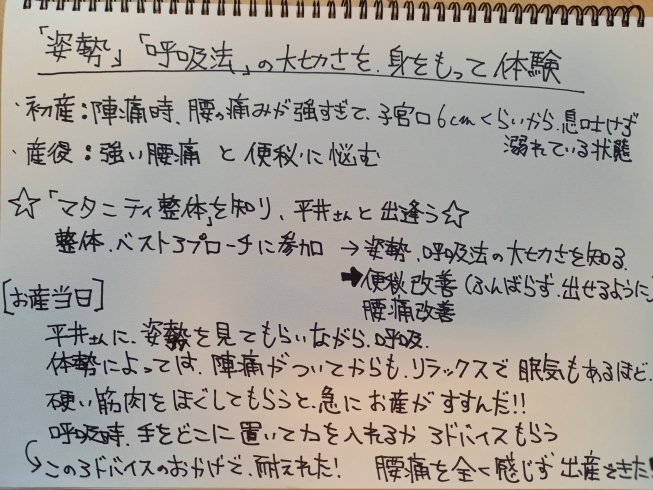 「姿勢」「呼吸法」の大切さを、身をもって体験
・初産：陣痛時、腰の痛みが強すぎて、子宮口6cmくらいから、息吐けず
溺れている状態
・産後：強い腰痛と便秘に悩む
☆「マタニティ整体」を知り、平井さんと出逢う☆
整体、ベストアプローチに参加 → 姿勢、呼吸法の大切さを知る
➡便秘改善(ふんばらず、出せるように)
腰痛改善
[お産当日]
平井さんに、姿勢を見てもらいながら、呼吸、
体勢によっては、陣痛がついてからも、リラックスで眠気もあるほど、
硬い筋肉をほぐしてもらうと、急にお産がすすんだ!!
呼吸時、手をどこに置いて力を入れるかアドバイスもらう
↪このアドバイスのおかげで、耐えれた! 腰痛を全く感じず出産できた!